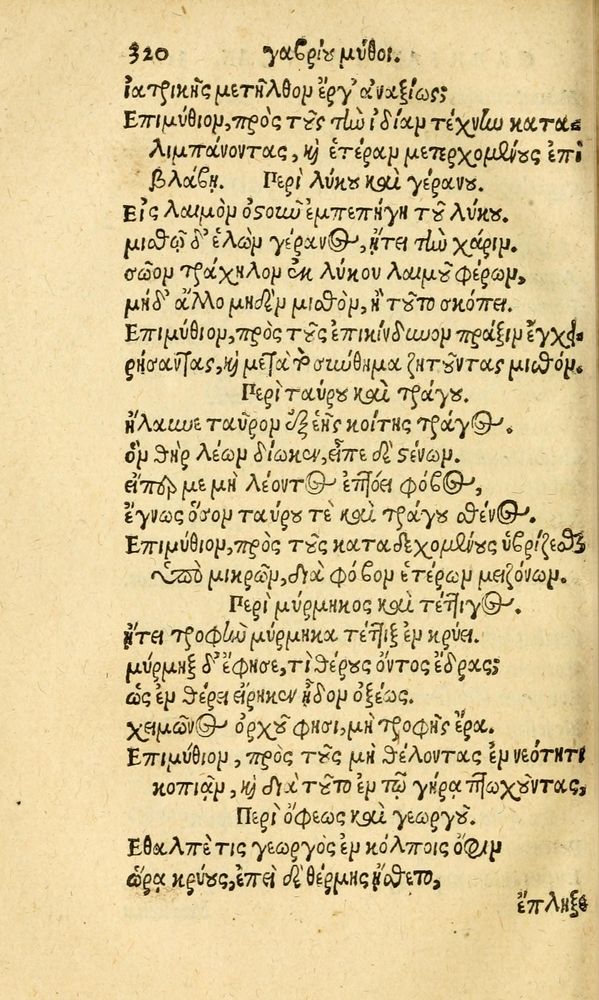 320 γαβρίου μύθοι.
ἰατρικῆς μετῆλθον ἔργ' ἀναξίως;
Επιμύθιον, πρὸς τοὺς τὴν ἰδίαν τέχνην κατα-
λιμπάνοντας, καὶ ἑτέραν μετερχομένους ἐπὶ
βλάβῃ. Περὶ λύκου καὶ γέρανου.
Εἰς λαιμὸν ὀστοῦν ἐμπεπήγη τοῦ λύκου.
μισθῷ δ' ἑλὼν γέρανος, ᾔτει τὴν χάριν.
σῶον τράχηλον ἐκ λύκου λαιμοῦ φέρων,
μήδ' ἄλλο μηδὲν μισθὸν, ἢ τοῦτο σκόπει.
Επιμύθιον, πρὸς τοὺς ἐπικίνδυνον πρᾶξιν ἐγχει-
ρήσαντας, καὶ μετὰ τὸ σωθῆναι ζητοῦντας μισθόν.
Περὶ ταύρου καὶ τράγου.
ἤλαυνε ταῦρον ἐξ ἑῆς κοίτης τράγος.
ὃν θὴρ λέων δίωκεν, εἶπε δὲ στένων.
εἴπερ με μὴ λέοντος ἐπτόει φόβος,
ἔγνως ὅσον ταύρου τὲ καὶ τράγου σθένος.
Επιμύθιον, πρὸς τοὺς καταδεχομένους ὑβρίζεσθαι
ὑπὸ μικρῶν, διὰ φόβον ἑτέρων μειζόνων.
Περὶ μύρμηκος καὶ τέττιγος.
ᾔτει τροφὴν μύρμηκα τέττιξ ἐν κρύει.
μύρμηξ δ' ἔφησε, τί θέρους ὄντος ἔδρας;
ὡς ἐν θέρει εἴρηκεν ᾖδον ὀξέως.
χειμῶνος ὀρχοῦ φησι, μὴ τροφῆς ἔρα.
Επιμύθιον, πρὸς τοὺς μὴ θέλοντας ἐν νεότητι
κοπιᾷν, καὶ διὰ τοῦτο ἐν τῷ γήρᾳ πτωχοῦντας,
Περὶ ὄφεως καὶ γεωργοῦ.
Εθαλπὲ τις γεωργὸς ἐν κόλποις ὄφιν
ὥρᾳ κρύους, ἐπεὶ δὲ θέρμης ᾔσθετο,
ἔπληξε